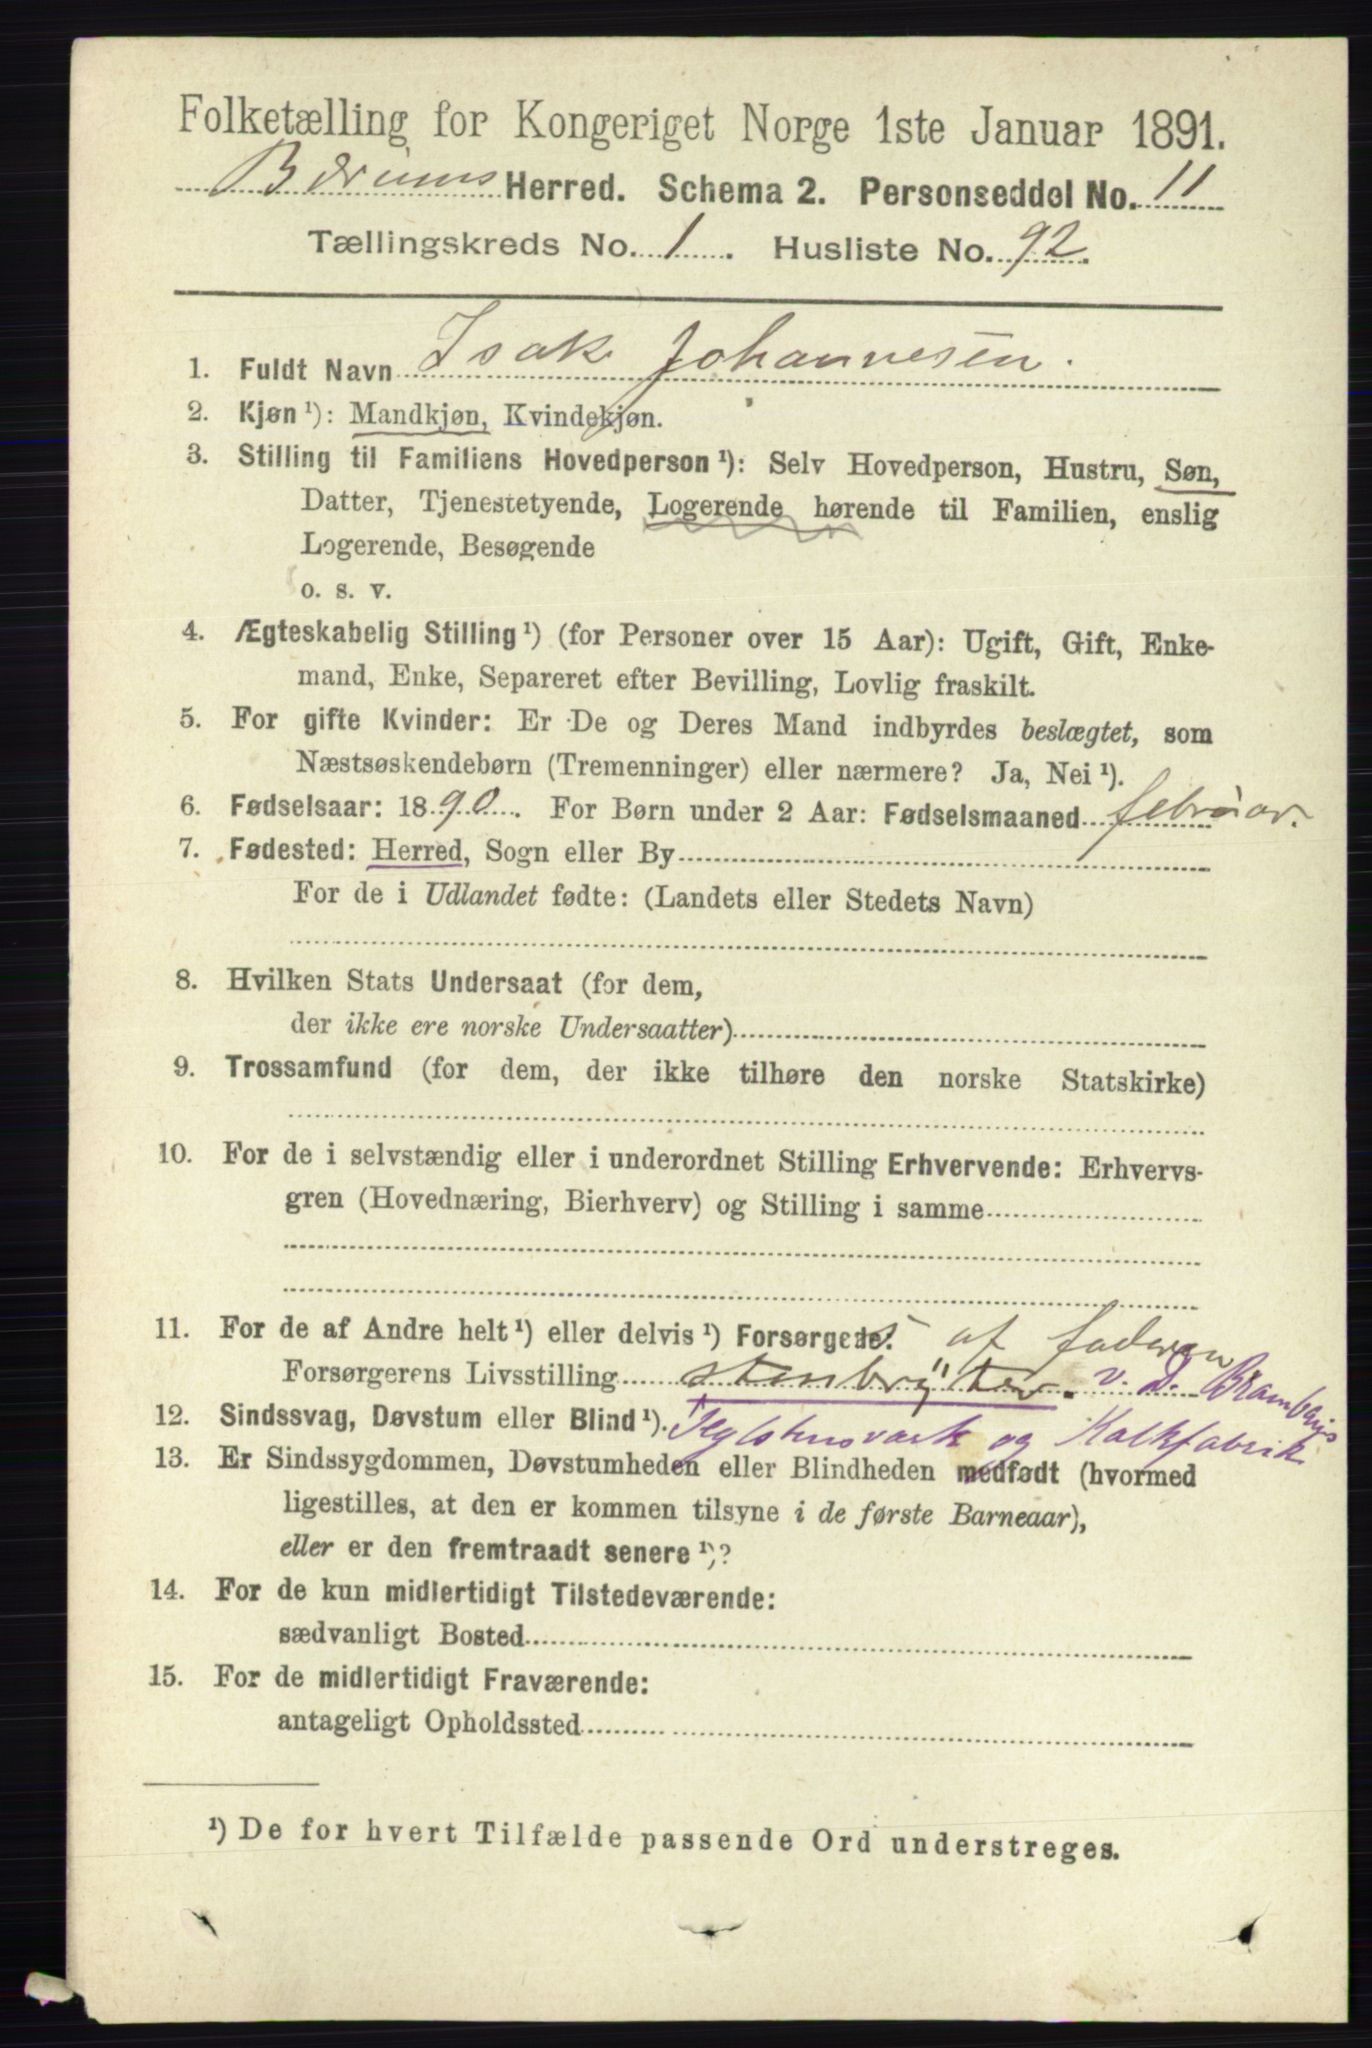 Folketælling for Kongeriget Norge 1ste Januar 1891.
Bærums Herred. Schema 2. Personseddel No. 11
Tællingskreds No. 1. Husliste No. 92.
1. Fuldt Navn Isak Johannesen.
2. Kjøn¹): Mandkjøn, Kvindekjøn.
3. Stilling til Familiens Hovedperson¹): Selv Hovedperson, Hustru, Søn,
Datter, Tjenestetyende, Logerende hørende til Familien, enslig
Logerende, Besøgende
o. s. v.
4. Ægteskabelig Stilling¹) (for Personer over 15 Aar): Ugift, Gift, Enke-
mand, Enke, Separeret efter Bevilling, Lovlig fraskilt.
5. For gifte Kvinder: Er De og Deres Mand indbyrdes beslægtet, som
Næstsøskendebørn (Tremenninger) eller nærmere? Ja, Nei¹).
6. Fødselsaar: 1890. For Børn under 2 Aar: Fødselsmaaned februar.
7. Fødested: Herred, Sogn eller By
For de i Udlandet fødte: (Landets eller Stedets Navn)
8. Hvilken Stats Undersaat (for dem,
der ikke ere norske Undersaatter)
9. Trossamfund (for dem, der ikke tilhøre den norske Statskirke)
10. For de i selvstændig eller i underordnet Stilling Erhvervende: Erhvervs-
gren (Hovednæring, Bierhverv) og Stilling i samme
11. For de af Andre helt¹) eller delvis¹) Forsørgede: af faderen
Forsørgerens Livsstilling stenbryter. v. D.
12. Sindssvag, Døvstum eller Blind¹). og Kalkfabrik
13. Er Sindssygdommen, Døvstumheden eller Blindheden medfødt (hvormed
ligestilles, at den er kommen tilsyne i de første Barneaar),
eller er den fremtraadt senere¹)?
14. For de kun midlertidigt Tilstedeværende:
sædvanligt Bosted
15. For de midlertidigt Fraværende:
antageligt Opholdssted
¹) De for hvert Tilfælde passende Ord understreges.